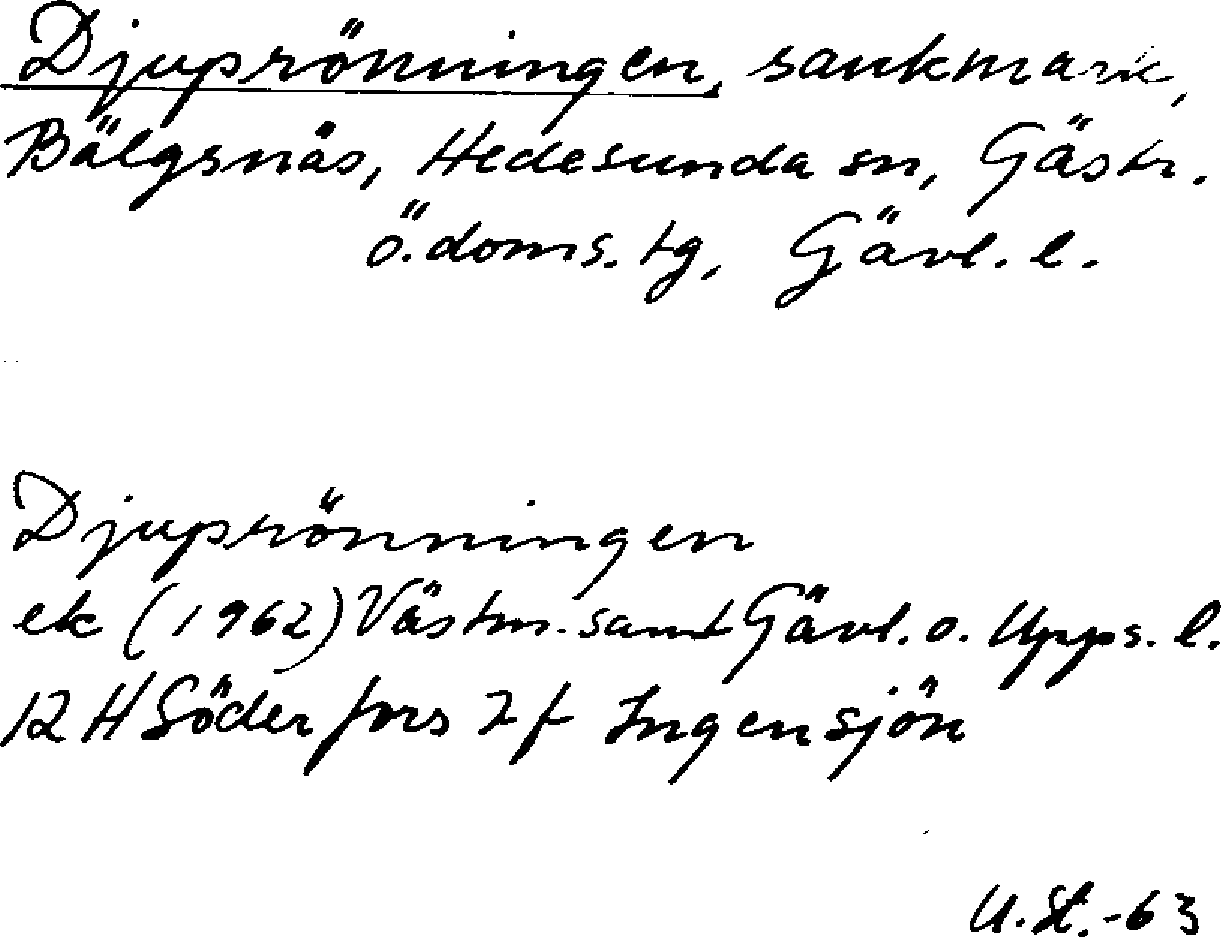 Djuprönningen, sankmark,
Bälgsnäs, Hedesunda sn, Gästr.
ö. doms. tg, Gävl. l.
Djuprönningen
ek (1962) Västm. samt Gävl. o. Upps. l.
12 H Söderfors 7 f Ingensjön
U. St. -63